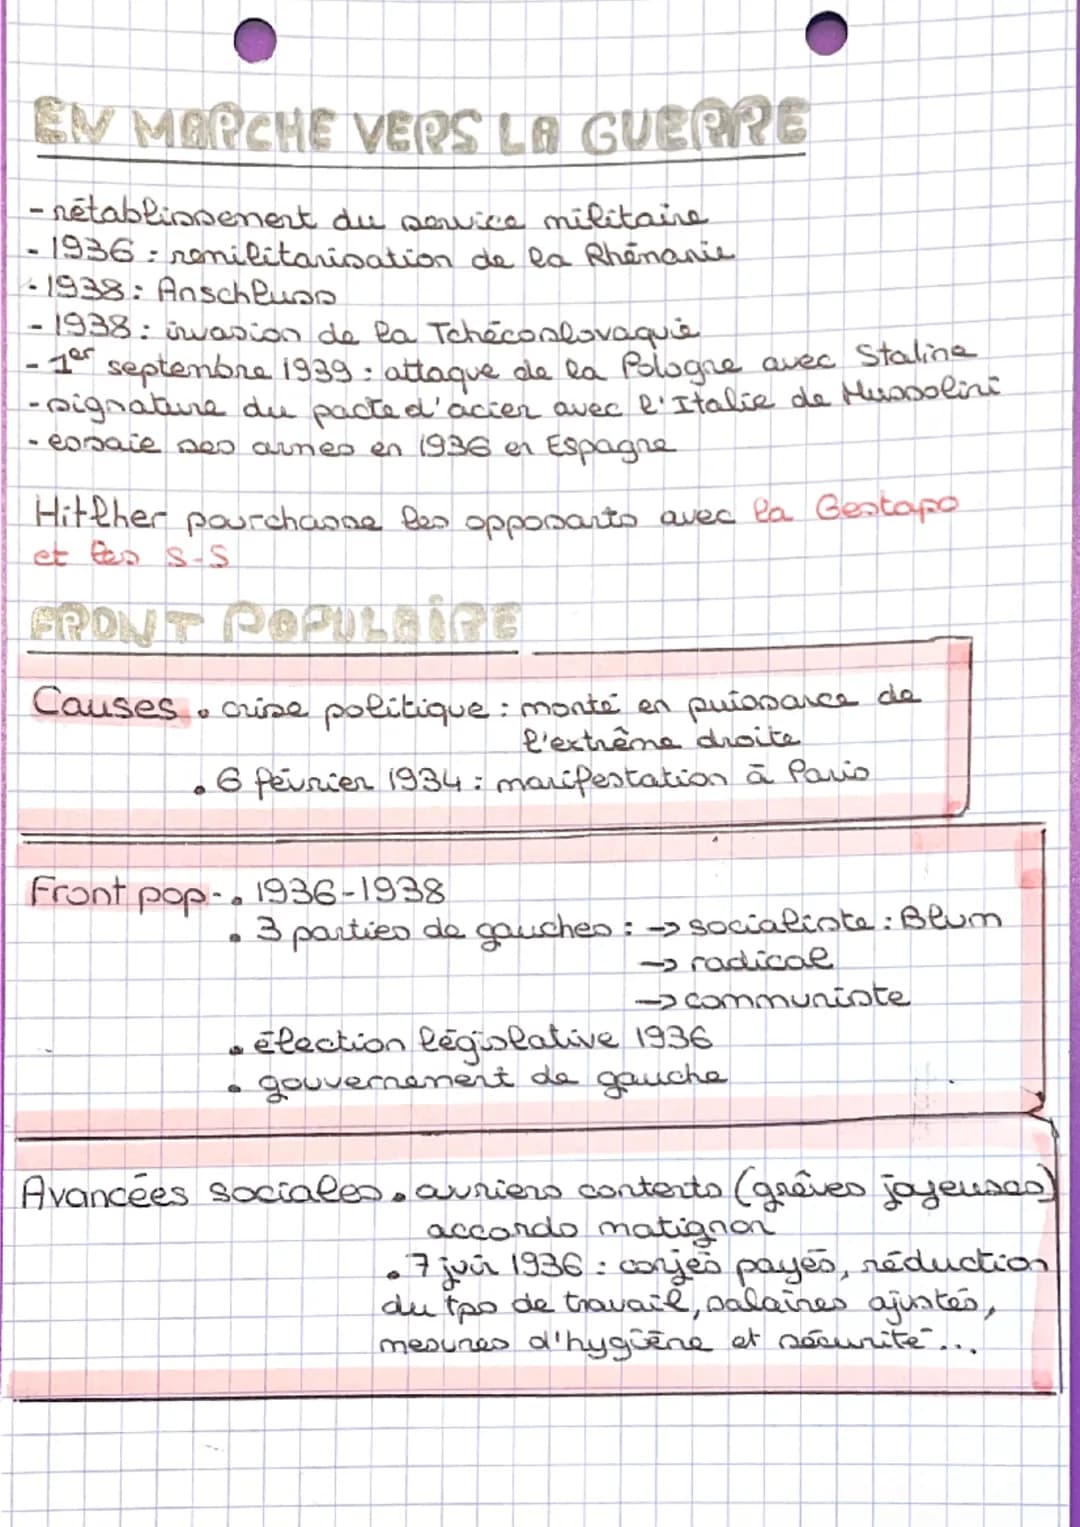 EN MARCHE VERS LA GUERRE
- rétablissement du service militaire
- 1936 : remilitarisation de la Rhénanie
- 1938 : Anschluss
- 1938 : invasion de la Tchécoslovaquie
- 1er septembre 1939 : attaque de la Pologne avec Staline
- signature du pacte d'acier avec l'Italie de Mussolini
- essaie ses armes en 1936 en Espagne
Hitlher pourchasse les opposants avec la Gestapo
et les S-S
FRONT POPULAIRE
Causes • crise politique : monté en puissance de
l'extrême droite
• 6 février 1934 : manifestation à Paris
Front pop- • 1936-1938
• 3 parties de gauches : -> socialiste : Blum
-> radical
-> communiste
• élection législative 1936
• gouvernement de gauche
Avancées sociales • ouvriers contents (grêves joyeuses)
accords matignon
• 7 juin 1936 : conjés payés, réduction
du tps de travail, salaires ajustés,
mesures d'hygiène et sécurité...